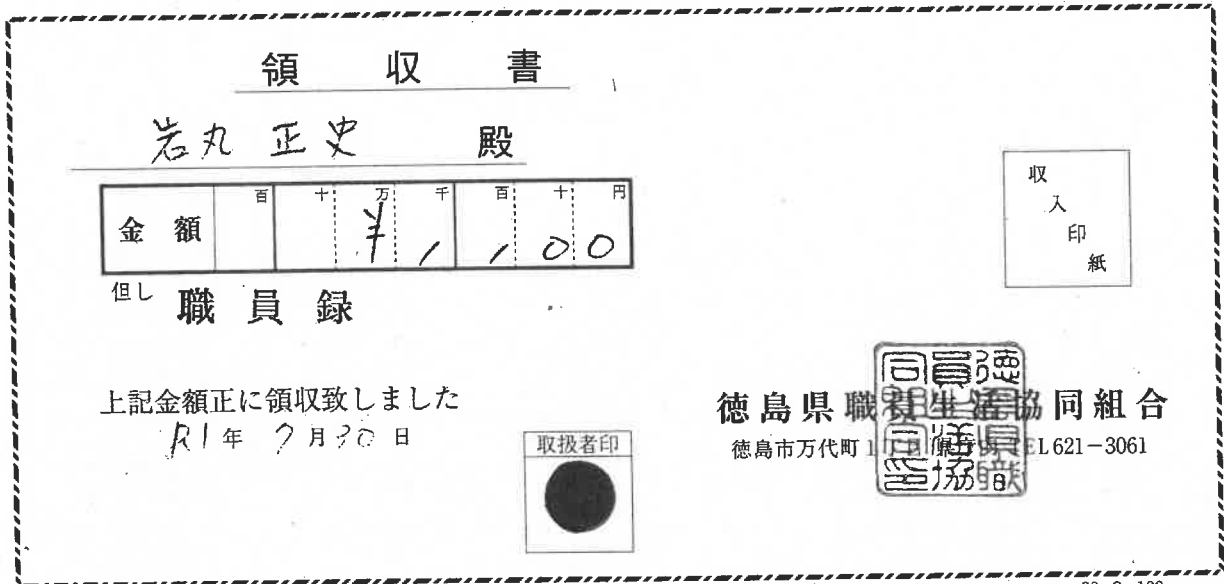 領 収 書
岩丸 正史 殿
金 額 百 十 万 千 百 十 円
¥1,100
但し 職 員 録
収入印紙
上記金額正に領収致しました
R1年 月30日
取扱者印
徳島県職員生活協同組合
徳島市万代町1丁目1 県庁内 TEL621-3061